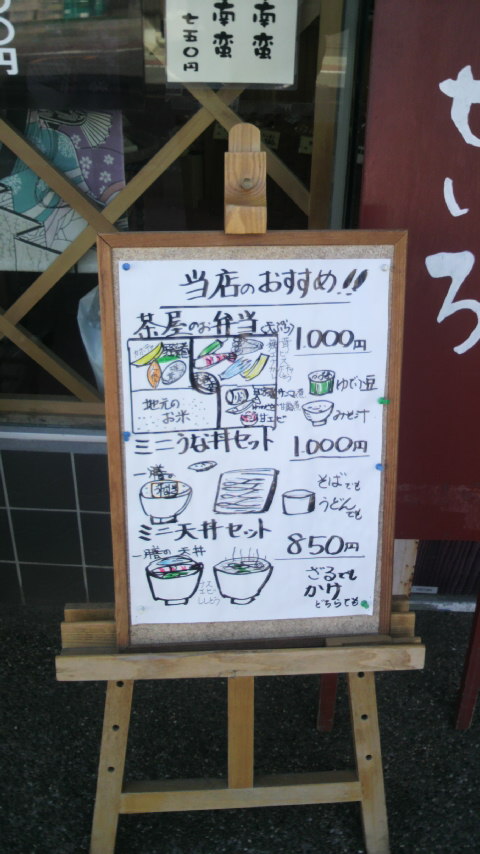 南蛮
南蛮
七五〇円
〇円
せいろ
当店のおすすめ!!
茶屋のお弁当
1000円
地元の
お米
ゆで豆
みそ汁
甘エビ
ミニうな丼セット
1,000円
一膳の
そばでも
うどんでも
ミニ天丼セット
850円
一膳の 天丼
ナス
エビ
ししとう
ざるでも
かけ
どちらでも